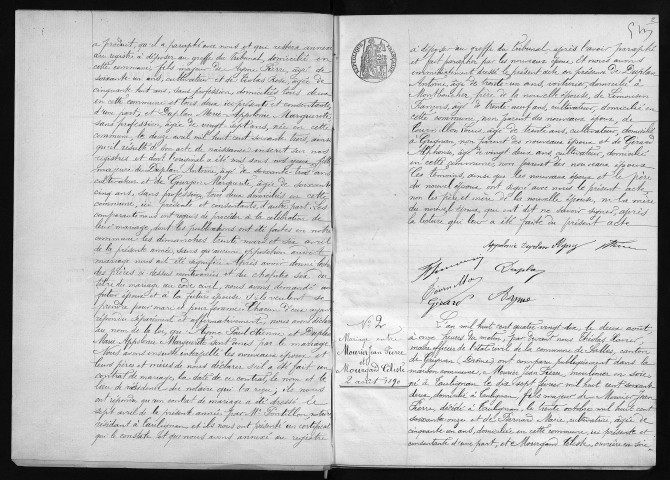 a produit, qu'il a paraphé avec nous et qui restera annexé
au registre à déposer au greffe du tribunal, domicilié en
cette commune, fils majeur de Ayme Pierre, âgé de
soixante un ans, cultivateur et de Rose, âgée de
cinquante huit ans, sans profession, domiciliés tous deux
en cette commune et tous deux ici présents et consentants,
d'une part, et Duplan Marie Appolonie Marguerite,
sans profession, âgée de vingt sept ans, née en cette
commune, le douze avril mil huit cent soixante trois, ainsi
qu'il résulte d'un acte de naissance inscrit sur nos
registres et dont l'original a été mis sous nos yeux, fille
majeure de Duplan Antoine, âgé de soixante trois ans
cultivateur et de Marguerite, âgée de soixante
cinq ans, sans profession, tous deux domiciliés en cette
commune, ici présents et consentants, d'autre part. Les
comparants nous ont requis de procéder à la célébration de
leur mariage, dont les publications ont été faites en notre
commune les dimanches trente mars et six avril
de la présente année, sans qu'aucune opposition audit
mariage nous ait été signifiée. Après avoir donné lecture
des pièces ci dessus mentionnées et du chapitre six du
titre du mariage du code civil, nous avons demandé au
futur époux et à la future épouse s'ils veulent se
prendre pour mari et pour femme. Chacun d'eux ayant
répondu séparément et affirmativement, nous avons déclaré
au nom de la loi, que Ayme Paul Etienne et Duplan
Marie Appolonie Marguerite sont unis par le mariage.
Nous avons ensuite interpellé les nouveaux époux et
leurs pères et mères de nous déclarer s'il a été fait un
contrat de mariage, la date de ce contrat, le nom et le
lieu de résidence du notaire qui l'a reçu; ils nous
ont répondu qu'un contrat de mariage a été dressé le
sept avril de la présente année, par Me notaire
résidant à Taulignan et ils nous ont présenté un certificat
qui le constate et que nous avons annexé au registre
à déposer au greffe du tribunal après l'avoir paraphé
et fait parapher par les nouveaux époux. Et nous avons
immédiatement dressé le présent acte en présence de Duplan
Antoine, âgé de trente ans, domicilié à
Montboucher, frère de la nouvelle épouse, de Limousin
François, âgé de trente neuf ans, cultivateur, domicilié en
cette commune, non parent des nouveaux époux, de
Louis, âgé de trente ans, cultivateur, domicilié
à Grignan, non parent des nouveaux époux et de Girard
Alphonse, âgé de vingt deux ans, cultivateur, domicilié
en cette commune, non parent des nouveaux époux.
Les témoins, ainsi que les nouveaux époux et le père
du nouvel époux, ont signé avec nous le présent acte,
non les père et mère de la nouvelle épouse, ni la mère
du nouvel époux, qui ont dit ne savoir signer, après
la lecture qui leur a été faite du présent acte.
Duplan
Girard Ayme
No 2
Mariage entre
Mounier Jean Pierre
et
Mourgand Céleste
2 août 1890
L'an mil huit cent quatre vingt dix, le deux août
à onze heures du matin, par devant nous Xavier,
maire officier de l'état civil de la commune de Salles, canton
de Grignan (Drôme) ont comparu publiquement dans la
maison commune, Mounier Jean Pierre, né
à Taulignan, le dix sept février mil huit cent soixante
deux, domicilié à Taulignan, fils majeur de Mounier Jean
Pierre décédé à Taulignan, le trente octobre mil huit cent
soixante onze et de Marie, cultivatrice, âgée de
cinquante un ans, domiciliée en cette commune, ici présente et
consentante d'une part, et Mourgand Céleste, ouvrière en soie